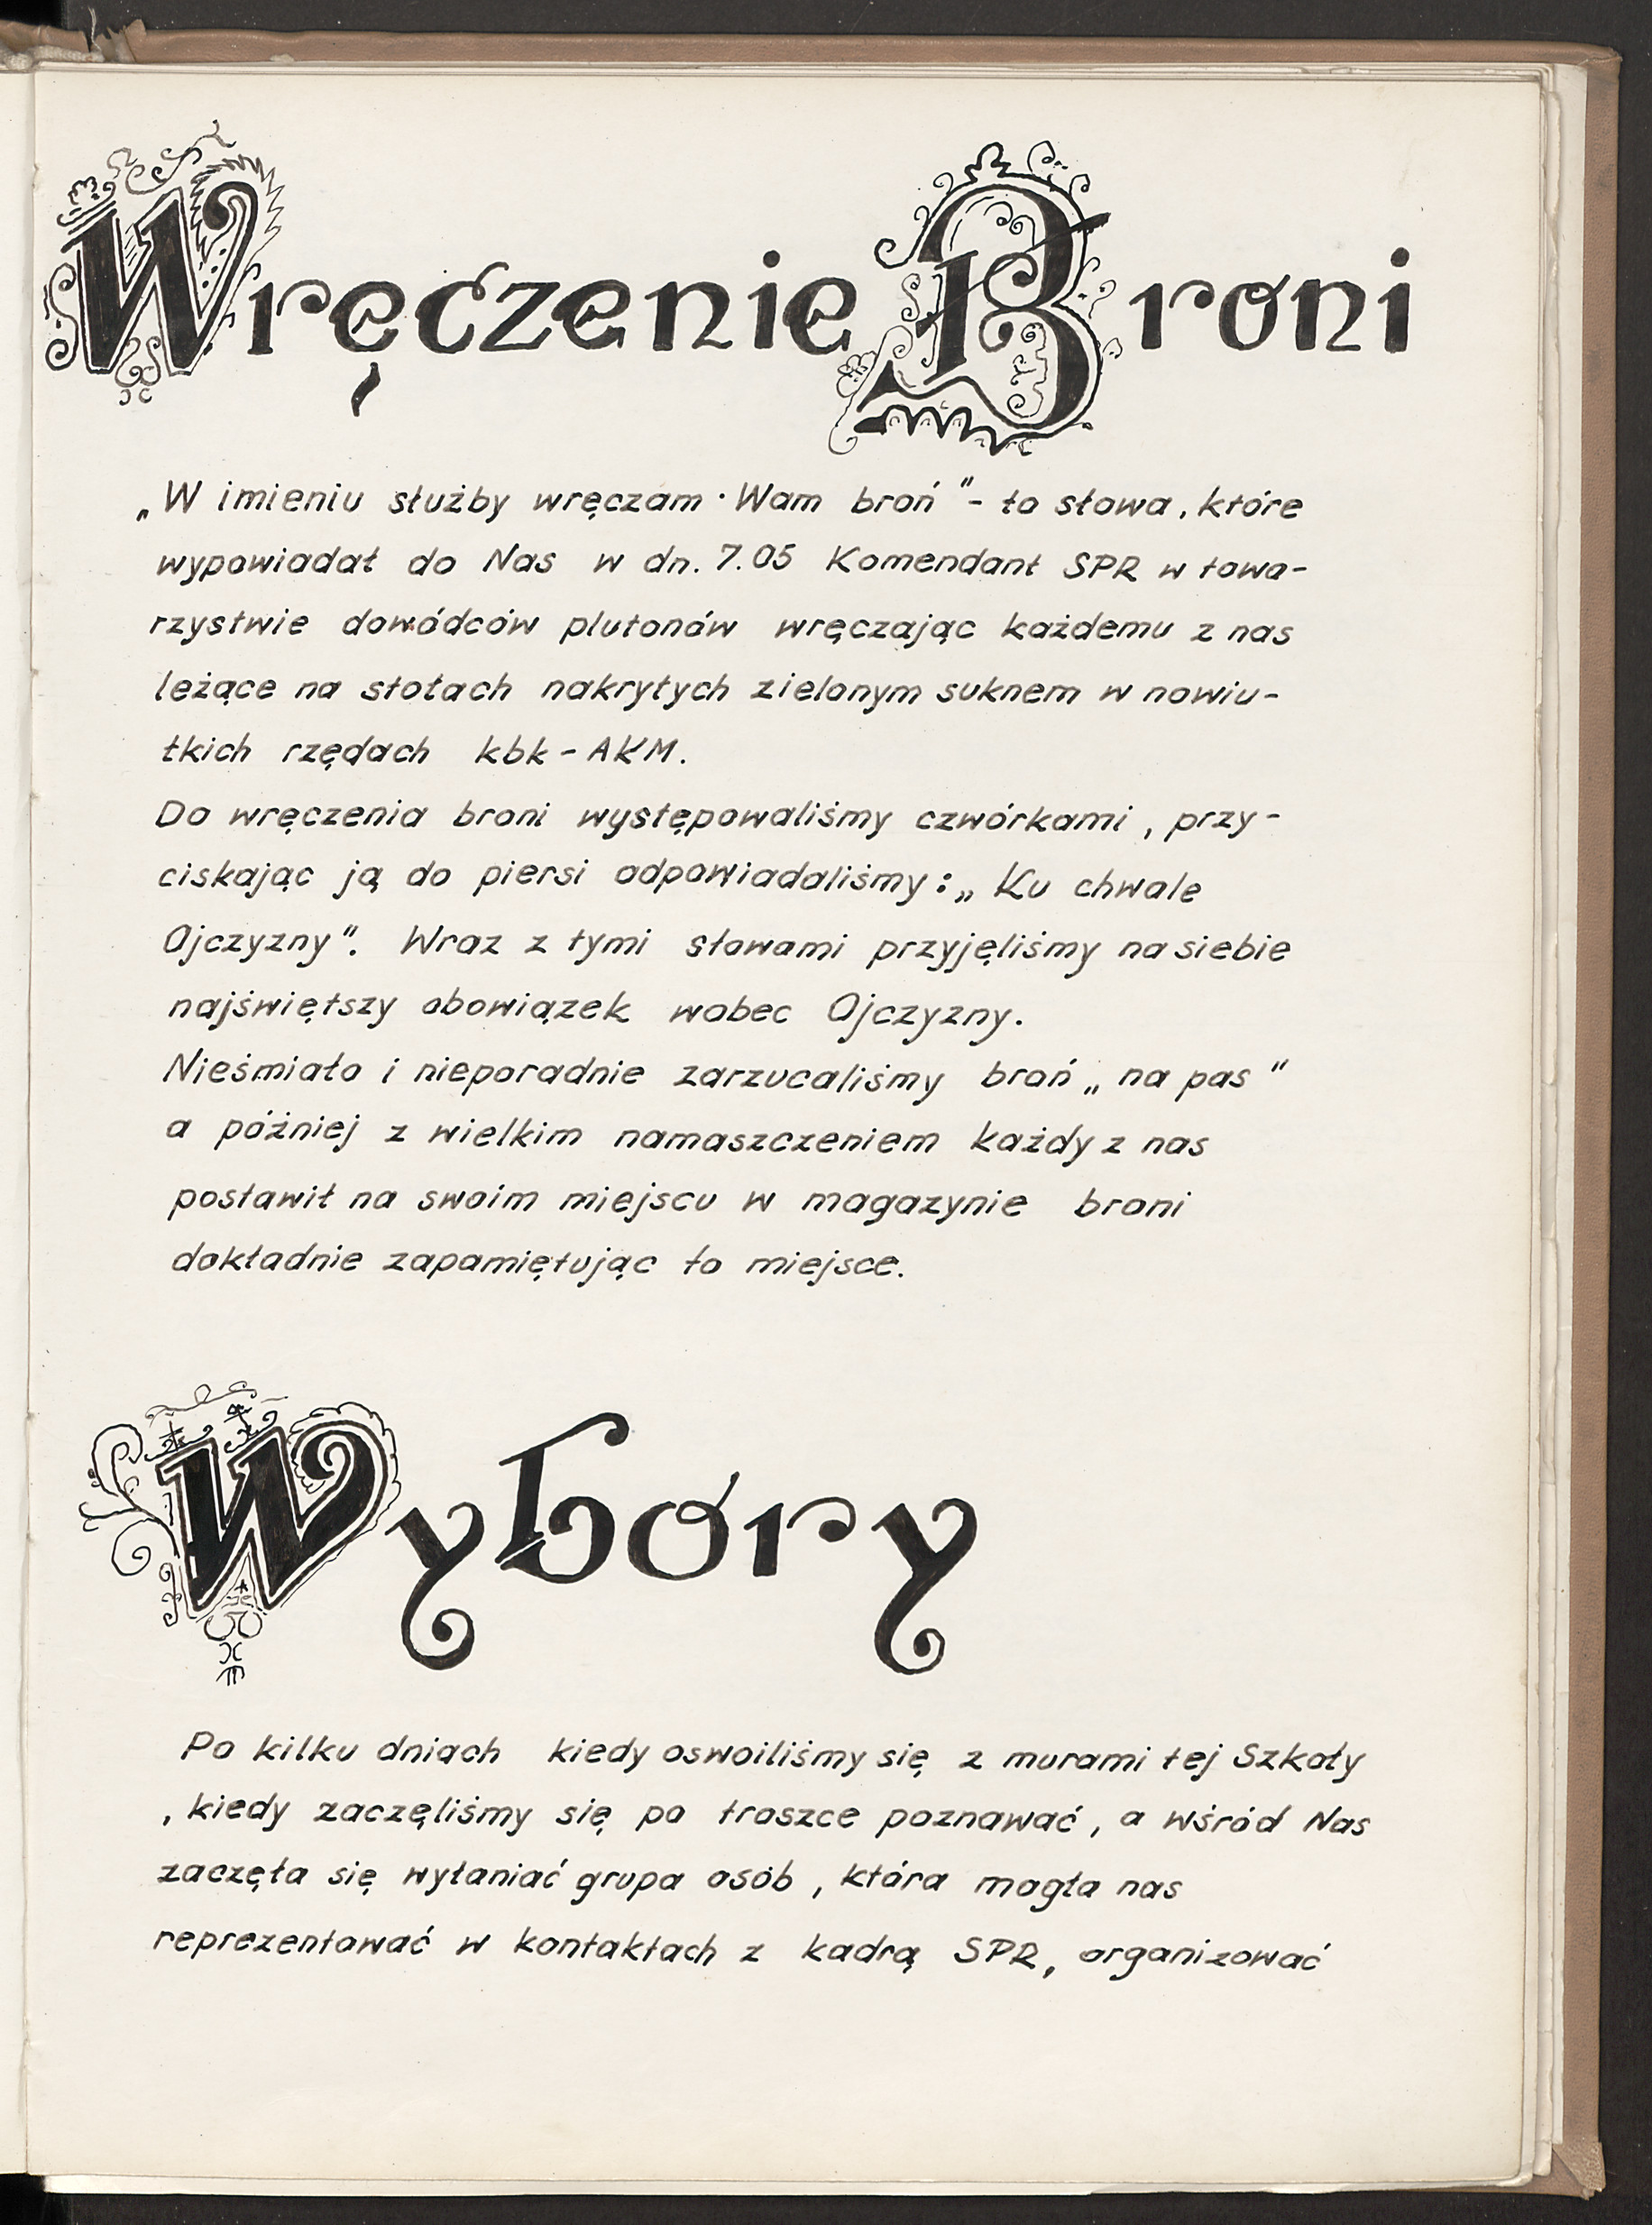 Wręczenie Broni
„W imieniu służby wręczam · Wam broń" - to słowa, które
wypowiadał do Nas w dn. 7.05 Komendant SPR w towa-
rzystwie dowódców plutonów wręczając każdemu z nas
leżące na stołach nakrytych zielonym suknem w nowiu-
tkich rzędach kbk - AKM.
Do wręczenia broni występowaliśmy czwórkami, przy-
ciskając ją do piersi odpowiadaliśmy: „Ku chwale
Ojczyzny". Wraz z tymi słowami przyjęliśmy na siebie
najświętszy obowiązek wobec Ojczyzny.
Nieśmiało i nieporadnie zarzucaliśmy broń „na pas"
a później z wielkim namaszczeniem każdy z nas
postawił na swoim miejscu w magazynie broni
dokładnie zapamiętując to miejsce.
Wybory
Po kilku dniach kiedy oswoiliśmy się z murami tej Szkoły
, kiedy zaczęliśmy się po troszce poznawać, a wśród Nas
zaczęła się wyłaniać grupa osób, która mogła nas
reprezentować w kontaktach z kadrą SPR, organizować